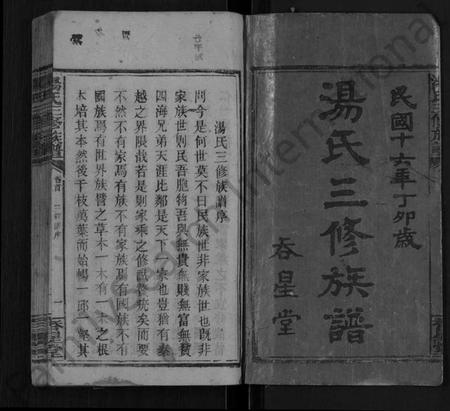 民國十六年丁卯歲
湯氏三修族譜
吞星堂
湯氏三修族譜序
問今是何世莫不曰民族世非家族世也既非
家族世則民吾胞物吾與無貴無賤無富無貧
四海兄弟天涯比鄰是天下一家也豈猶有秦
越之界限哉若是則家乘之修
不然不有家焉有族不有家族焉有國族不有
國族焉有世界族譬之草木一木有一木之根
培其本然後千枝萬葉而始暢一邱一壑其